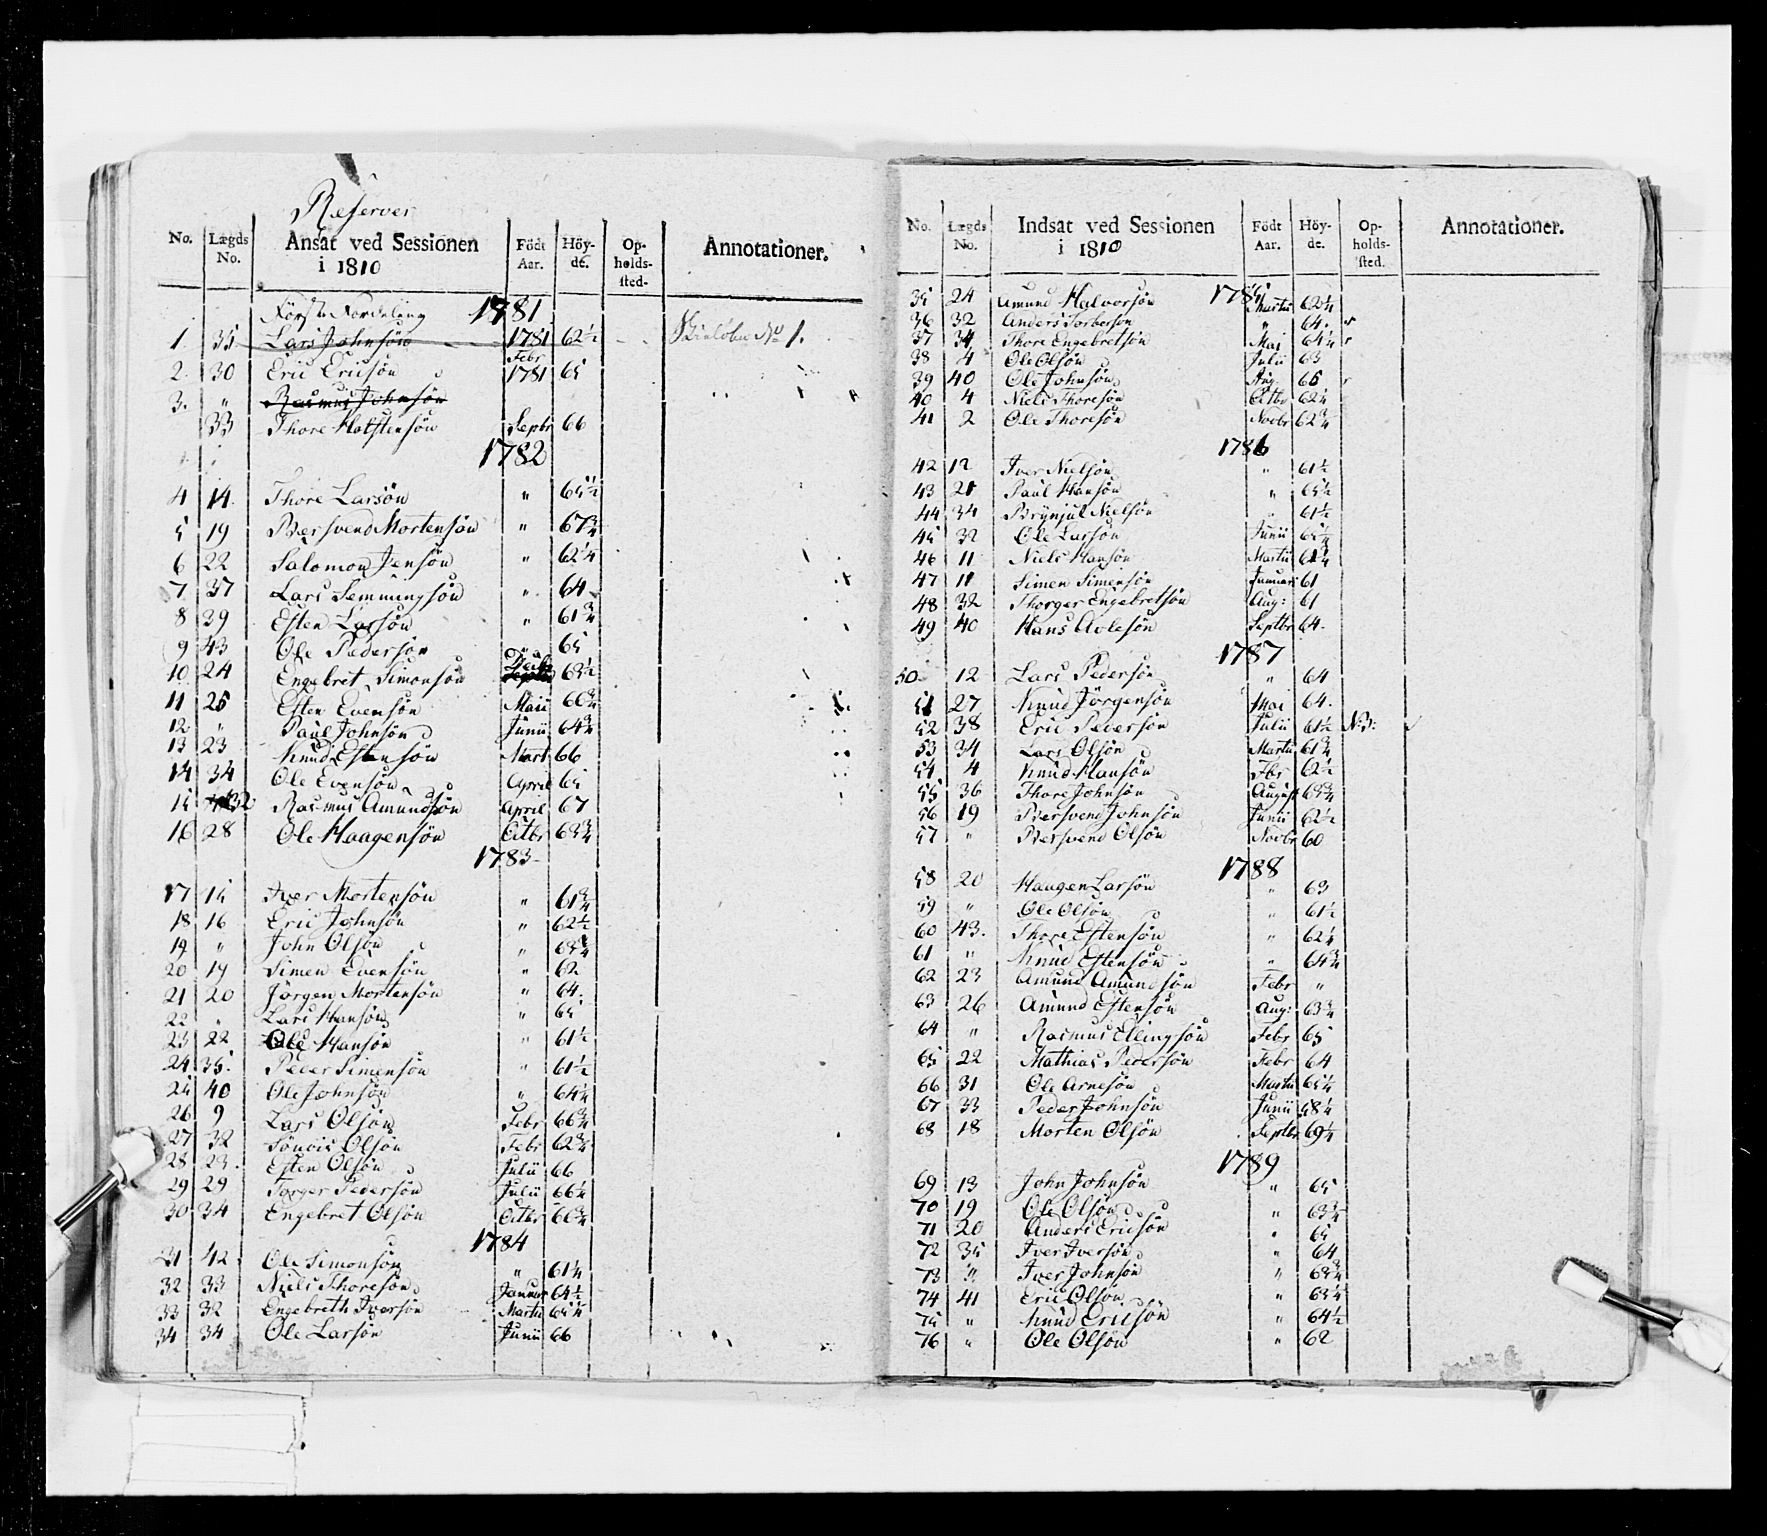 Reserver
No. Lægds No. Ansat ved Sessionen i 1810 Födt Aar. Höyde. Opholdssted. Annotationer.
Förste Fordeling 1781
1. 35 Lars Johnsön 1781 62½ No 1.
2. 30 Eric Ericsön Febr 1781 65
3. " Rasmus Johnsön
33 Thore Halstensön Septbr 66
1782
4 14. Thore Larsön " 65½
5 19 Bersvend Mortensön " 67¾
6 22 Salomon Jensön " 62¼
7 37 Lars Semmingsön " 64
8 39 Esten Larsön " 61¾
9 43 Ole Pedersön " 65
10 24 Engebret Simonsön 63½
11 25 Esten Evensön Maii 60¾
12 " Paul Johnsön Junii 64¾
13 23 Knud Estensön Mart 66
14 34 Ole Evensön April 65
15 32 Rasmus Amundsön April 67
16 28 Ole Haagensön Octbr 63¾
1783
17 15 Iver Mortensön " 61¾
18 16 Eric Johnsön " 62½
19 " John Olsön " 63¾
20 19 Simen Evensön " 62
21 20 Jörgen Mortensön " 64
22 " Lars Hansön " 65
23 22 Ole Hansön " 61½
24 35. Peder Simensön " 61½
25 40 Ole Johnsön " 64¼
26 9 Lars Olsön Febr 66¾
27 32 Olsön Febr 62¾
28 23. Esten Olsön Julii 66
29 29 Torger Pedersön Julii 66¼
30 34 Engebret Olsön Octbr 66¾
1784
31 42 Ole Simonsön " 61¼
32 33 Niels Thoresön Januar 64½
33 32 Engebreth Iversön Martii 65¼
34 34 Ole Larsön Junii 66
No. Lægds No. Indsat ved Sessionen i 1810 Födt Aar. Höyde. Opholdssted. Annotationer.
1785
35 24 Amund Halvorsön Martii 62¼
36 32 Anders Torbersön " 64.
37 34 Thore Engebretsön Mai 64¼
38 4 Ole Olsön Julii 63
39 40 Ole Johnsön Aug. 65
40 4 Niels Thoresön Octbr 62¼
41 2 Ole Thoresön Novbr 62¾
1786
42 12 Iver Nielsön " 61½
43 21 Paul Hansön " 65½
44 34 Brynjul Nielsön " 61½
45 32 Ole Larsön Junii 65¼
46 11 Niels Hansön Martii 61¼
47 11 Simen Simensön Januari 61
48 32 Thorger Engebretsön Aug: 61
49 40 Hans Avlesön Septbr 64.
1787
50 12 Lars Pedersön " 64
51 27 Knud Jörgensön Mai 64.
52 38 Eric Pedersön Julii 61½ NB:
53 34 Lars Olsön Martii 61¾
54 4 Knud Hansön Fbr 62½
55 36 Thore Johnsön August 63¾
56 19 Bersvend Johnsön Junii 62½
57 " Bersvend Olsön Novbr 60
1788
58 20 Haagen Larsön " 63
59 " Ole Olsön " 61½
60 43. Thore Estensön " 62¼
61 " Knud Estensön " 64¾
62 23 Amund Amundsön Febr "
63 26 Amund Estensön Aug: 63¾
64 " Rasmus Ellingsön Febr 65
65 22 Mathias Pedersön Febr 64
66 31 Ole Arnesön Martii 65¼
67 33 Peder Johnsön Junii 58¼
68 18 Morten Olsön Septbr 69¼
1789
69 13 John Johnsön " 65
70 19 Ole Olsön " 63¾
71 20 Anders Ericsön " 65
72 35 Iver Iversön " 64
73 " Iver Johnsön " 63¾
74 41 Eric Olsön " 63¼
75 " Knud Ericsön " 64½
76 " Ole Olsön " 62